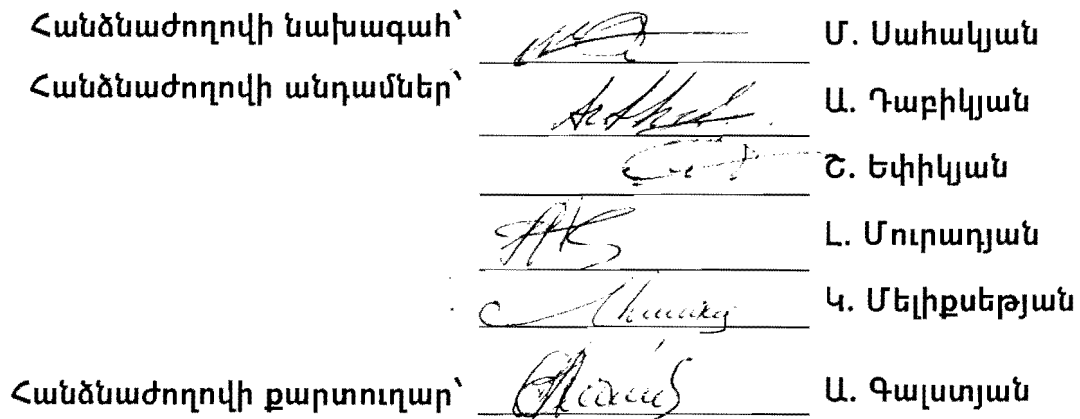 Հանձնաժողովի նախագահ՝ Մ. Սահակյան
Հանձնաժողովի անդամներ՝ Ա. Դաբիկյան
Շ. Եփիկյան
Լ. Մուրադյան
Կ. Մելիքսեթյան
Հանձնաժողովի քարտուղար՝ Ա. Գալստյան